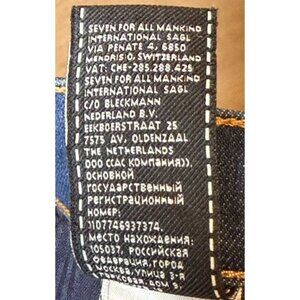 SEVEN FOR ALL MANKIND
INTERNATIONAL SAGL
VIA PENATE 4, 6850
MENDRISIO, SWITZERLAND
VAT: CHE-285.288.425
SEVEN FOR ALL MANKIND
INTERNATIONAL SAGL
C/O BLECKMANN
NEDERLAND B.V.
EEKBOERSTRAAT 25
7575 AV, OLDENZAAL
THE NETHERLANDS
ООО (САС КОМПАНИЯ)),
ОСНОВНОЙ
ГОСУДАРСТВЕННЫЙ
РЕГИСТРАЦИОННЫЙ
НОМЕР:
1107746937374.
МЕСТО НАХОЖДЕНИЯ:
105037, РОССИЙСКАЯ
ФЕДЕРАЦИЯ, ГОРОД
МОСКВА, УЛИЦА 3-Я
ПАРКОВАЯ, ДОМ